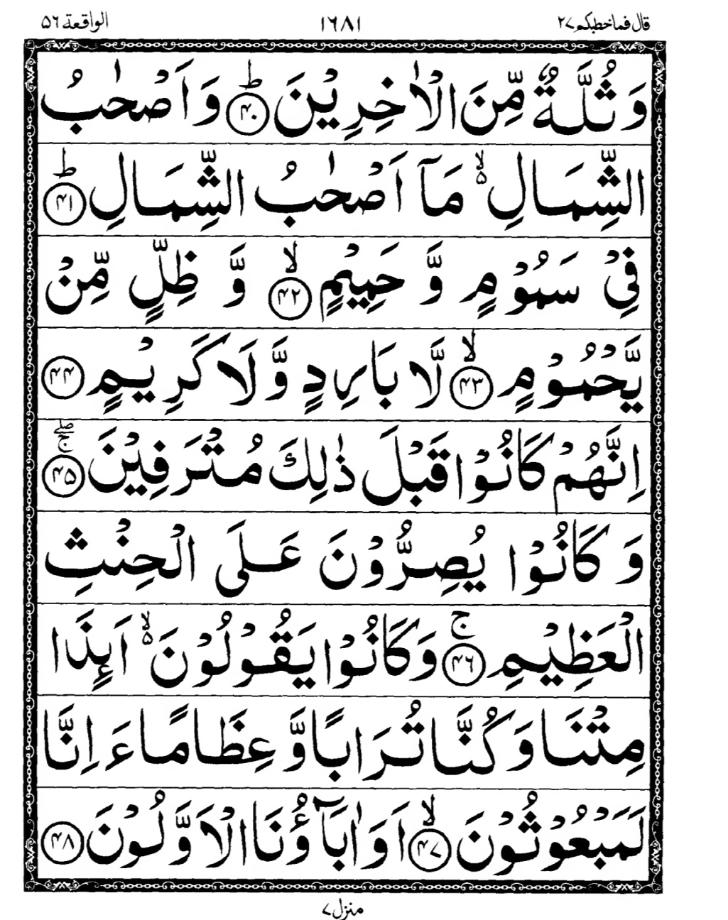 قال فماخطبكم ٢٧ ١٦٨١ الواقعة ٥٦
وَ ثُلَّةٌ مِّنَ الْاٰخِرِیْنَ ؕ﴿۴۰﴾ وَ اَصْحٰبُ
الشِّمَالِ ۙ۬ مَاۤ اَصْحٰبُ الشِّمَالِ ؕ﴿۴۱﴾
فِیْ سَمُوْمٍ وَّ حَمِیْمٍ ۙ﴿۴۲﴾ وَّ ظِلٍّ مِّنْ
یَّحْمُوْمٍ ۙ﴿۴۳﴾ لَّا بَارِدٍ وَّ لَا كَرِیْمٍ ﴿۴۴﴾
اِنَّهُمْ كَانُوْا قَبْلَ ذٰلِكَ مُتْرَفِیْنَ ۚۖ﴿۴۵﴾
وَ كَانُوْا یُصِرُّوْنَ عَلَی الْحِنْثِ
الْعَظِیْمِ ۚ﴿۴۶﴾ وَ كَانُوْا یَقُوْلُوْنَ ۙ۬ اَىِٕذَا
مِتْنَا وَ كُنَّا تُرَابًا وَّ عِظَامًا ءَاِنَّا
لَمَبْعُوْثُوْنَ ۙ﴿۴۷﴾ اَوَ اٰبَآؤُنَا الْاَوَّلُوْنَ ﴿۴۸﴾
منزل ٧